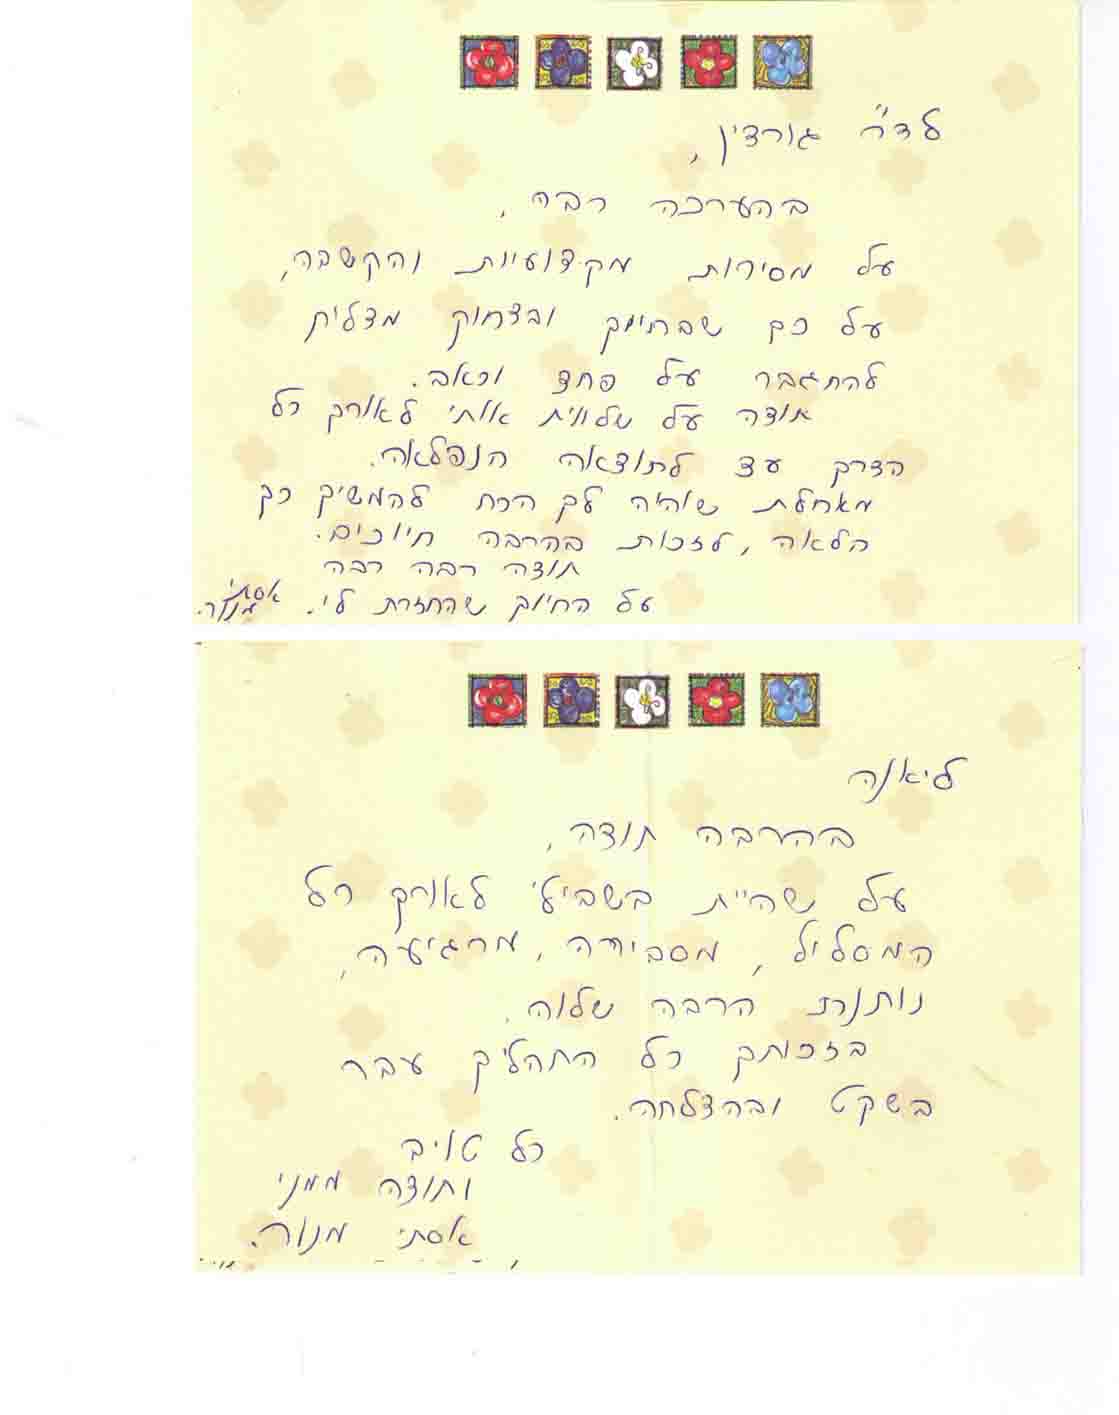 לד"ר גורדין,
בהערכה רבה,
על מסירות, מקצועיות והקשבה,
על כך שבחיוך ובצחוק מצליח
להתגבר על פחד וכאב.
תודה על שלווית אותי לאורך כל
הדרך עד לתוצאה הנפלאה.
מאחלת שיהיה לך הכח להמשיך כך
הלאה, לזכות בהרבה חיוכים.
תודה רבה רבה
על החיוך שהחזרת לי. אסתי
מנור.
ליאנה
בהרבה תודה,
על שהיית בשבילי לאורך כל
המסלול, מסבירה, מרגיעה,
נותנת הרבה שלווה.
בזכותך כל התהליך עבר
בשקט ובהצלחה.
כל טוב
ותודה ממני
אסתי מנור.